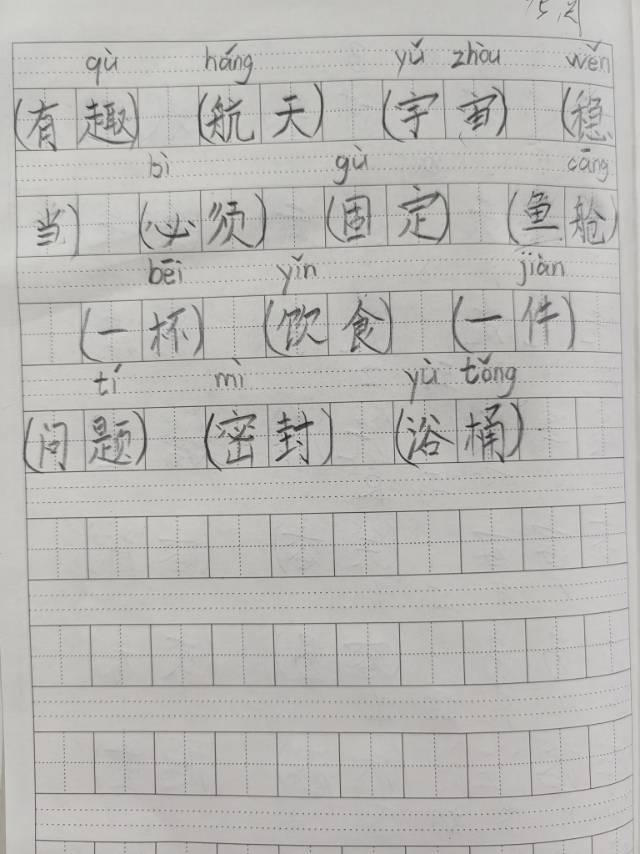 qù háng yǔ zhòu wěn
(有趣) (航天) (宇宙) (稳
bì gù cāng
当) (必须) (固定) (鱼舱)
bēi yǐn jiàn
(一杯) (饮食) (一件)
tí mì yù tǒng
(问题) (密封) (浴桶)